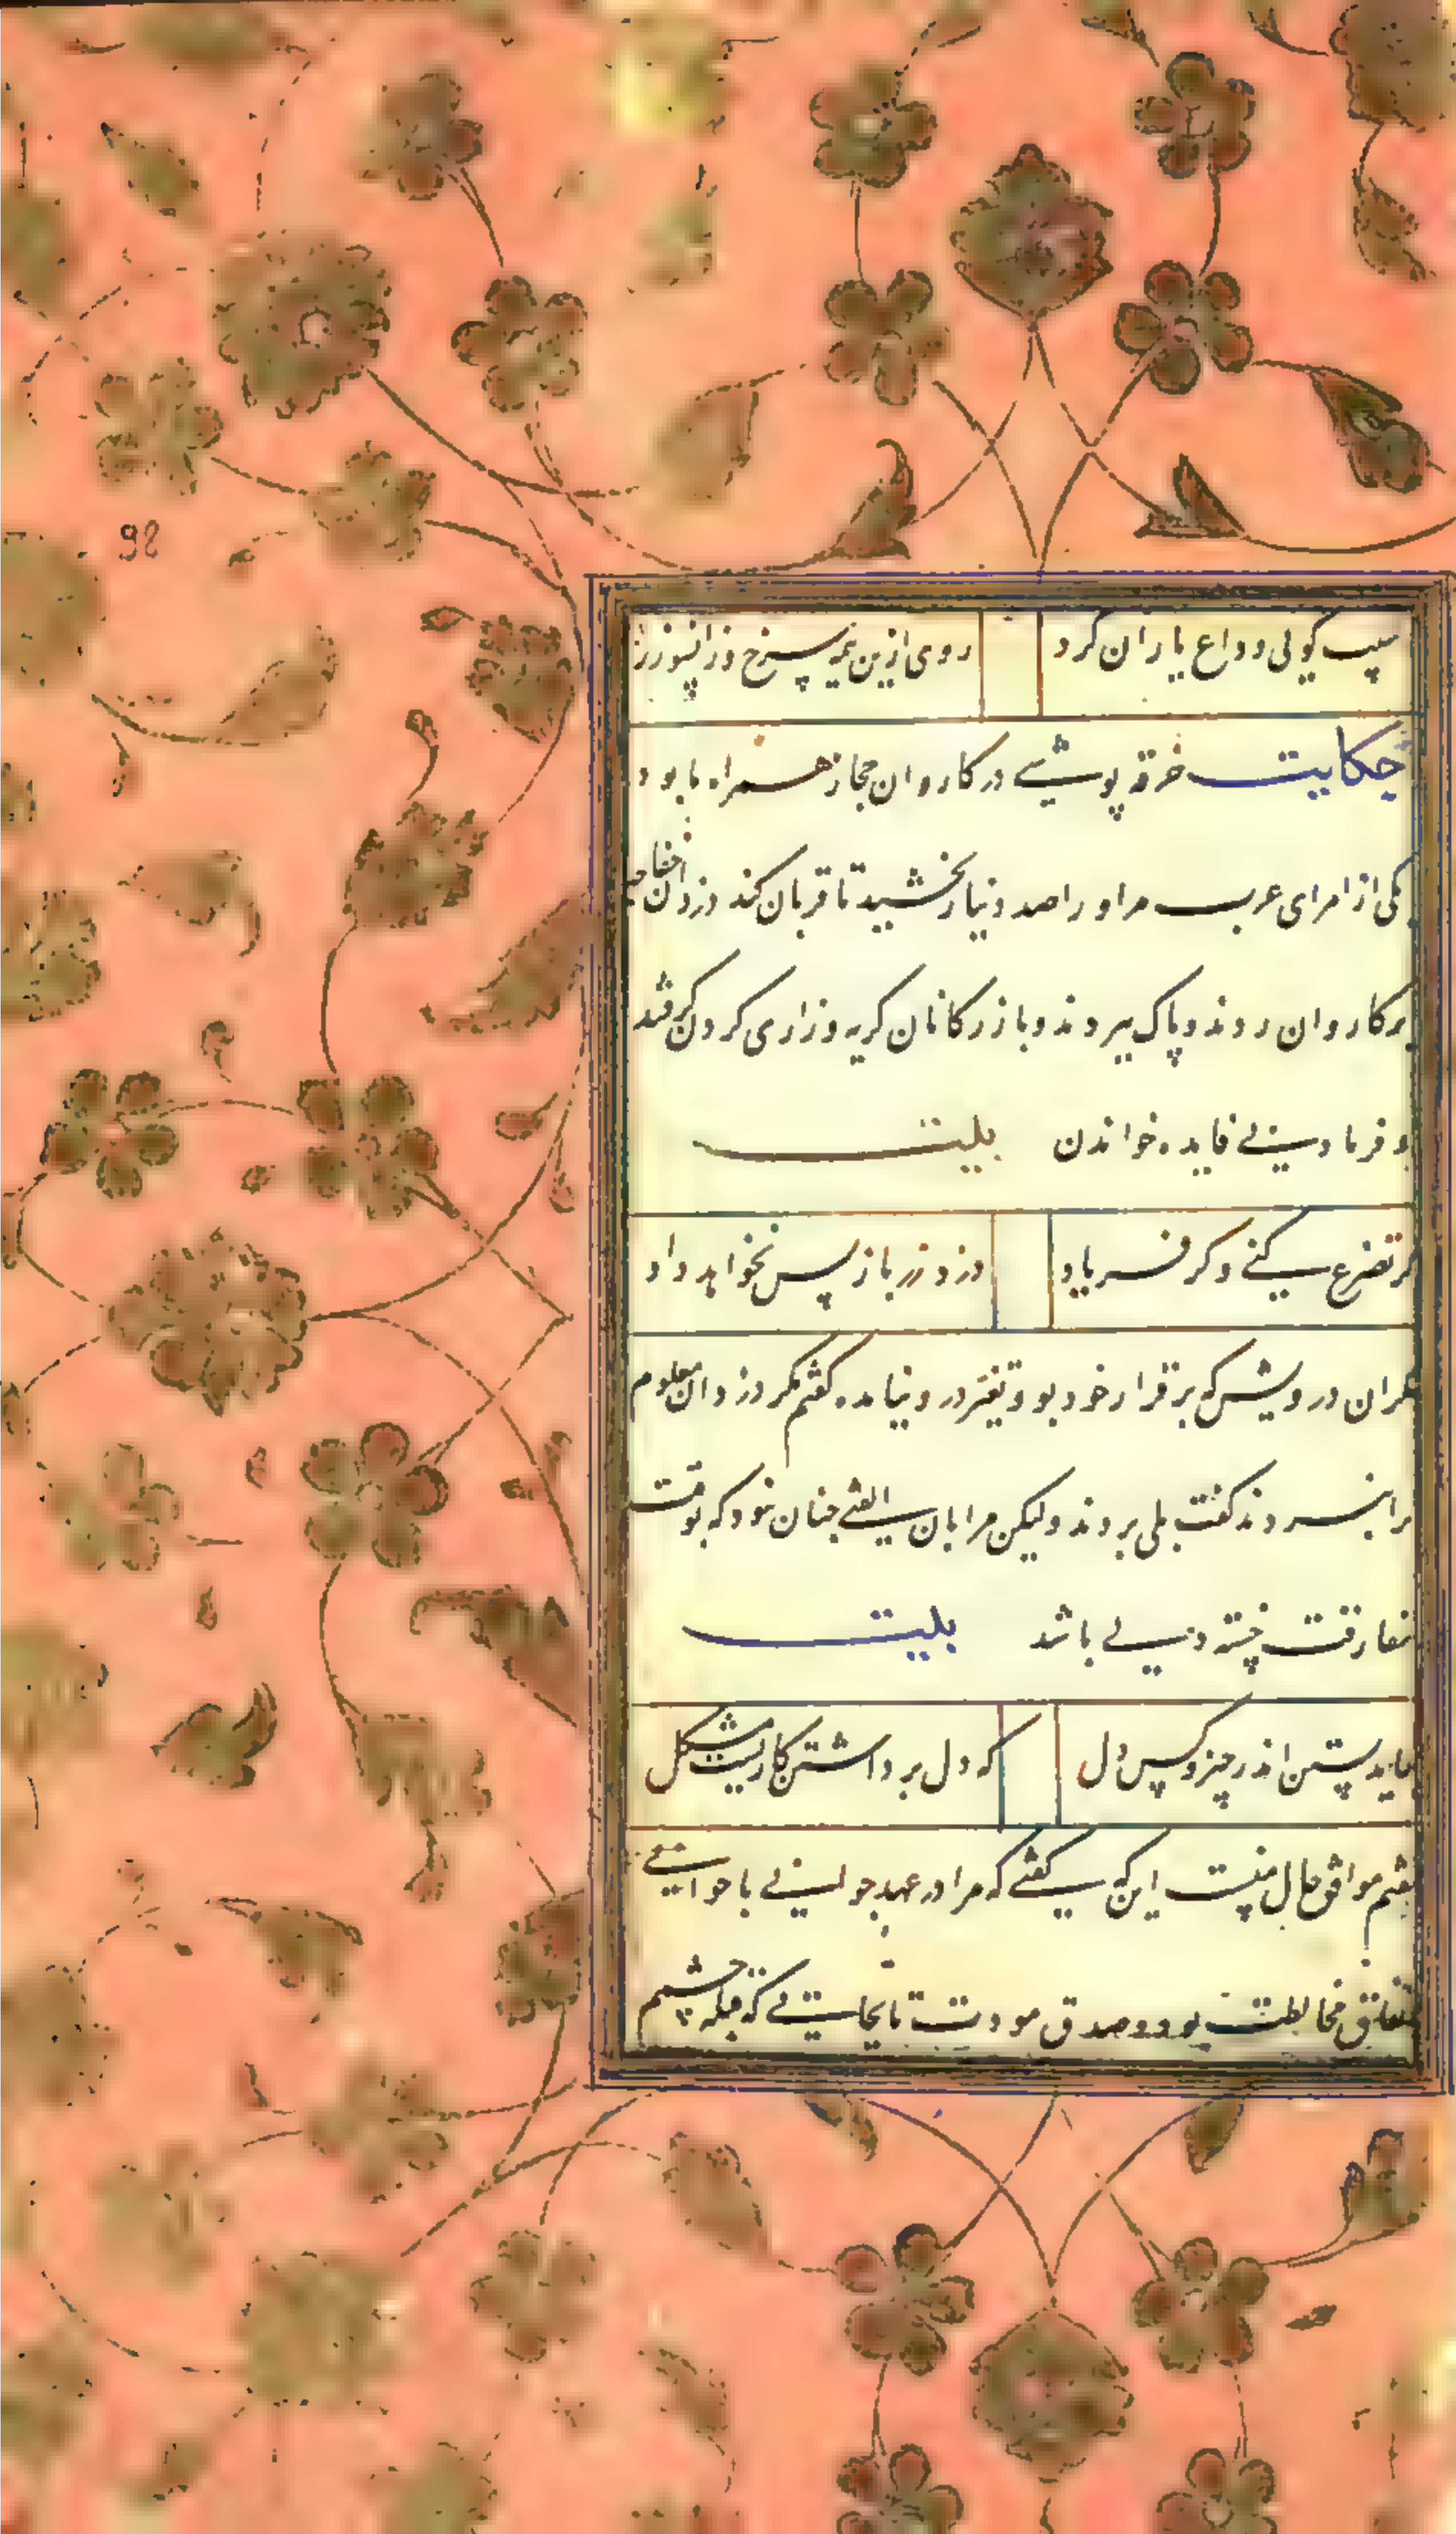 98
سیب گویی وداع یاران کرد روی ازین نیمه سرخ وزانسو زرد
حکایت خرقه پوشی در کاروان حجاز همراه ما بود
یکی از امرای عرب مر او را صد دینار بخشید تا قربان کند دزدان خفاجه
بر کاروان زدند و پاک ببردند و بازرگانان گریه و زاری کردن گرفتند
و فریاد بی فایده خواندن بیت
گر تضرع کنی و گر فریاد دزد زر باز پس نخواهد داد
مگر آن درویش که برقرار خود بود و تغیر درو نیامده گفتم مگر دزدان معلوم
ترا نبردند گفت بلی بردند ولیکن مرا با آن الفتی چنان نبود که بوقت
مفارقت خسته دلی باشد بیت
نباید بستن اندر چیز و کس دل که دل برداشتن کاریست مشکل
گفتم موافق حال منست این که گفتی که مرا در عهد جوانی با جوانی
اتفاق مخالطت بود و صدق مودت تا بجایی که قبله چشمم